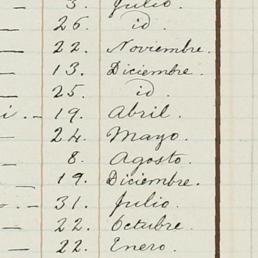 3. Julio.
26. id.
22. Noviembre.
13. Diciembre.
25. id.
19. Abril.
24. Mayo.
8. Agosto.
19. Diciembre.
31. Julio.
22. Octubre.
22. Enero.